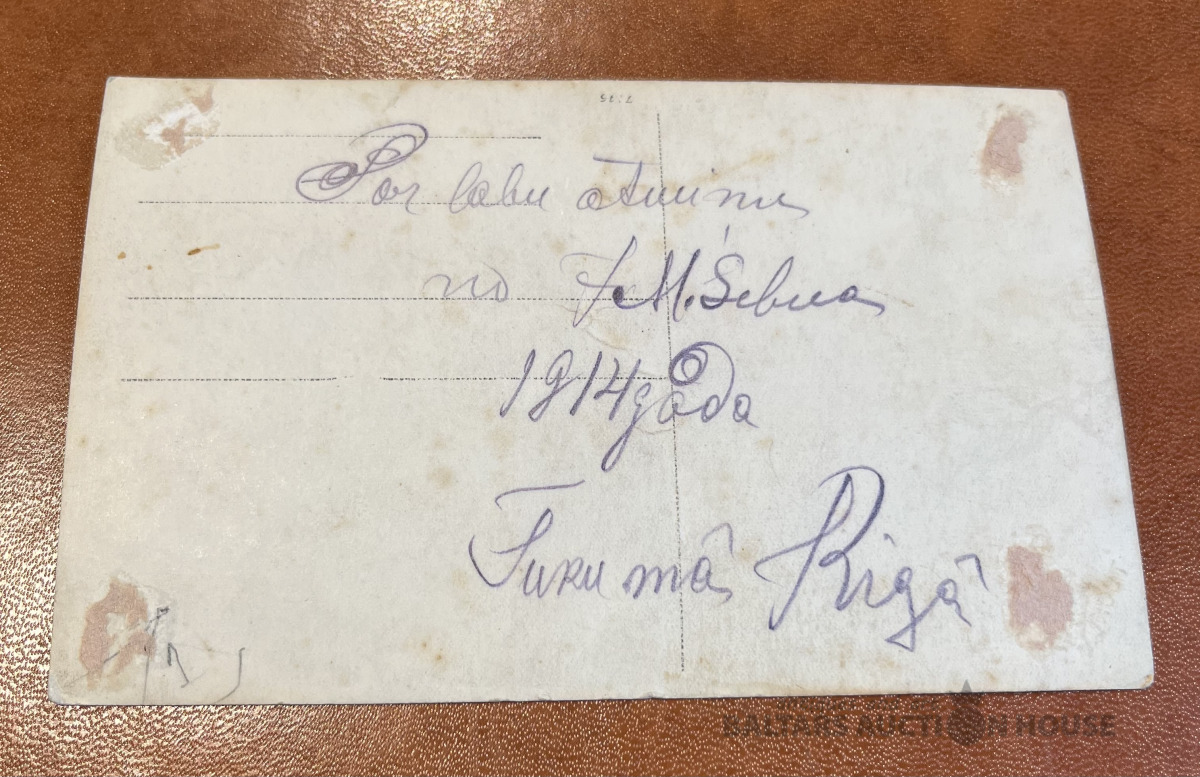 Par labu atmiņu
no J M. Šebua
1914 gada
Tukumā Rīgā
BALTARS AUCTION HOUSE